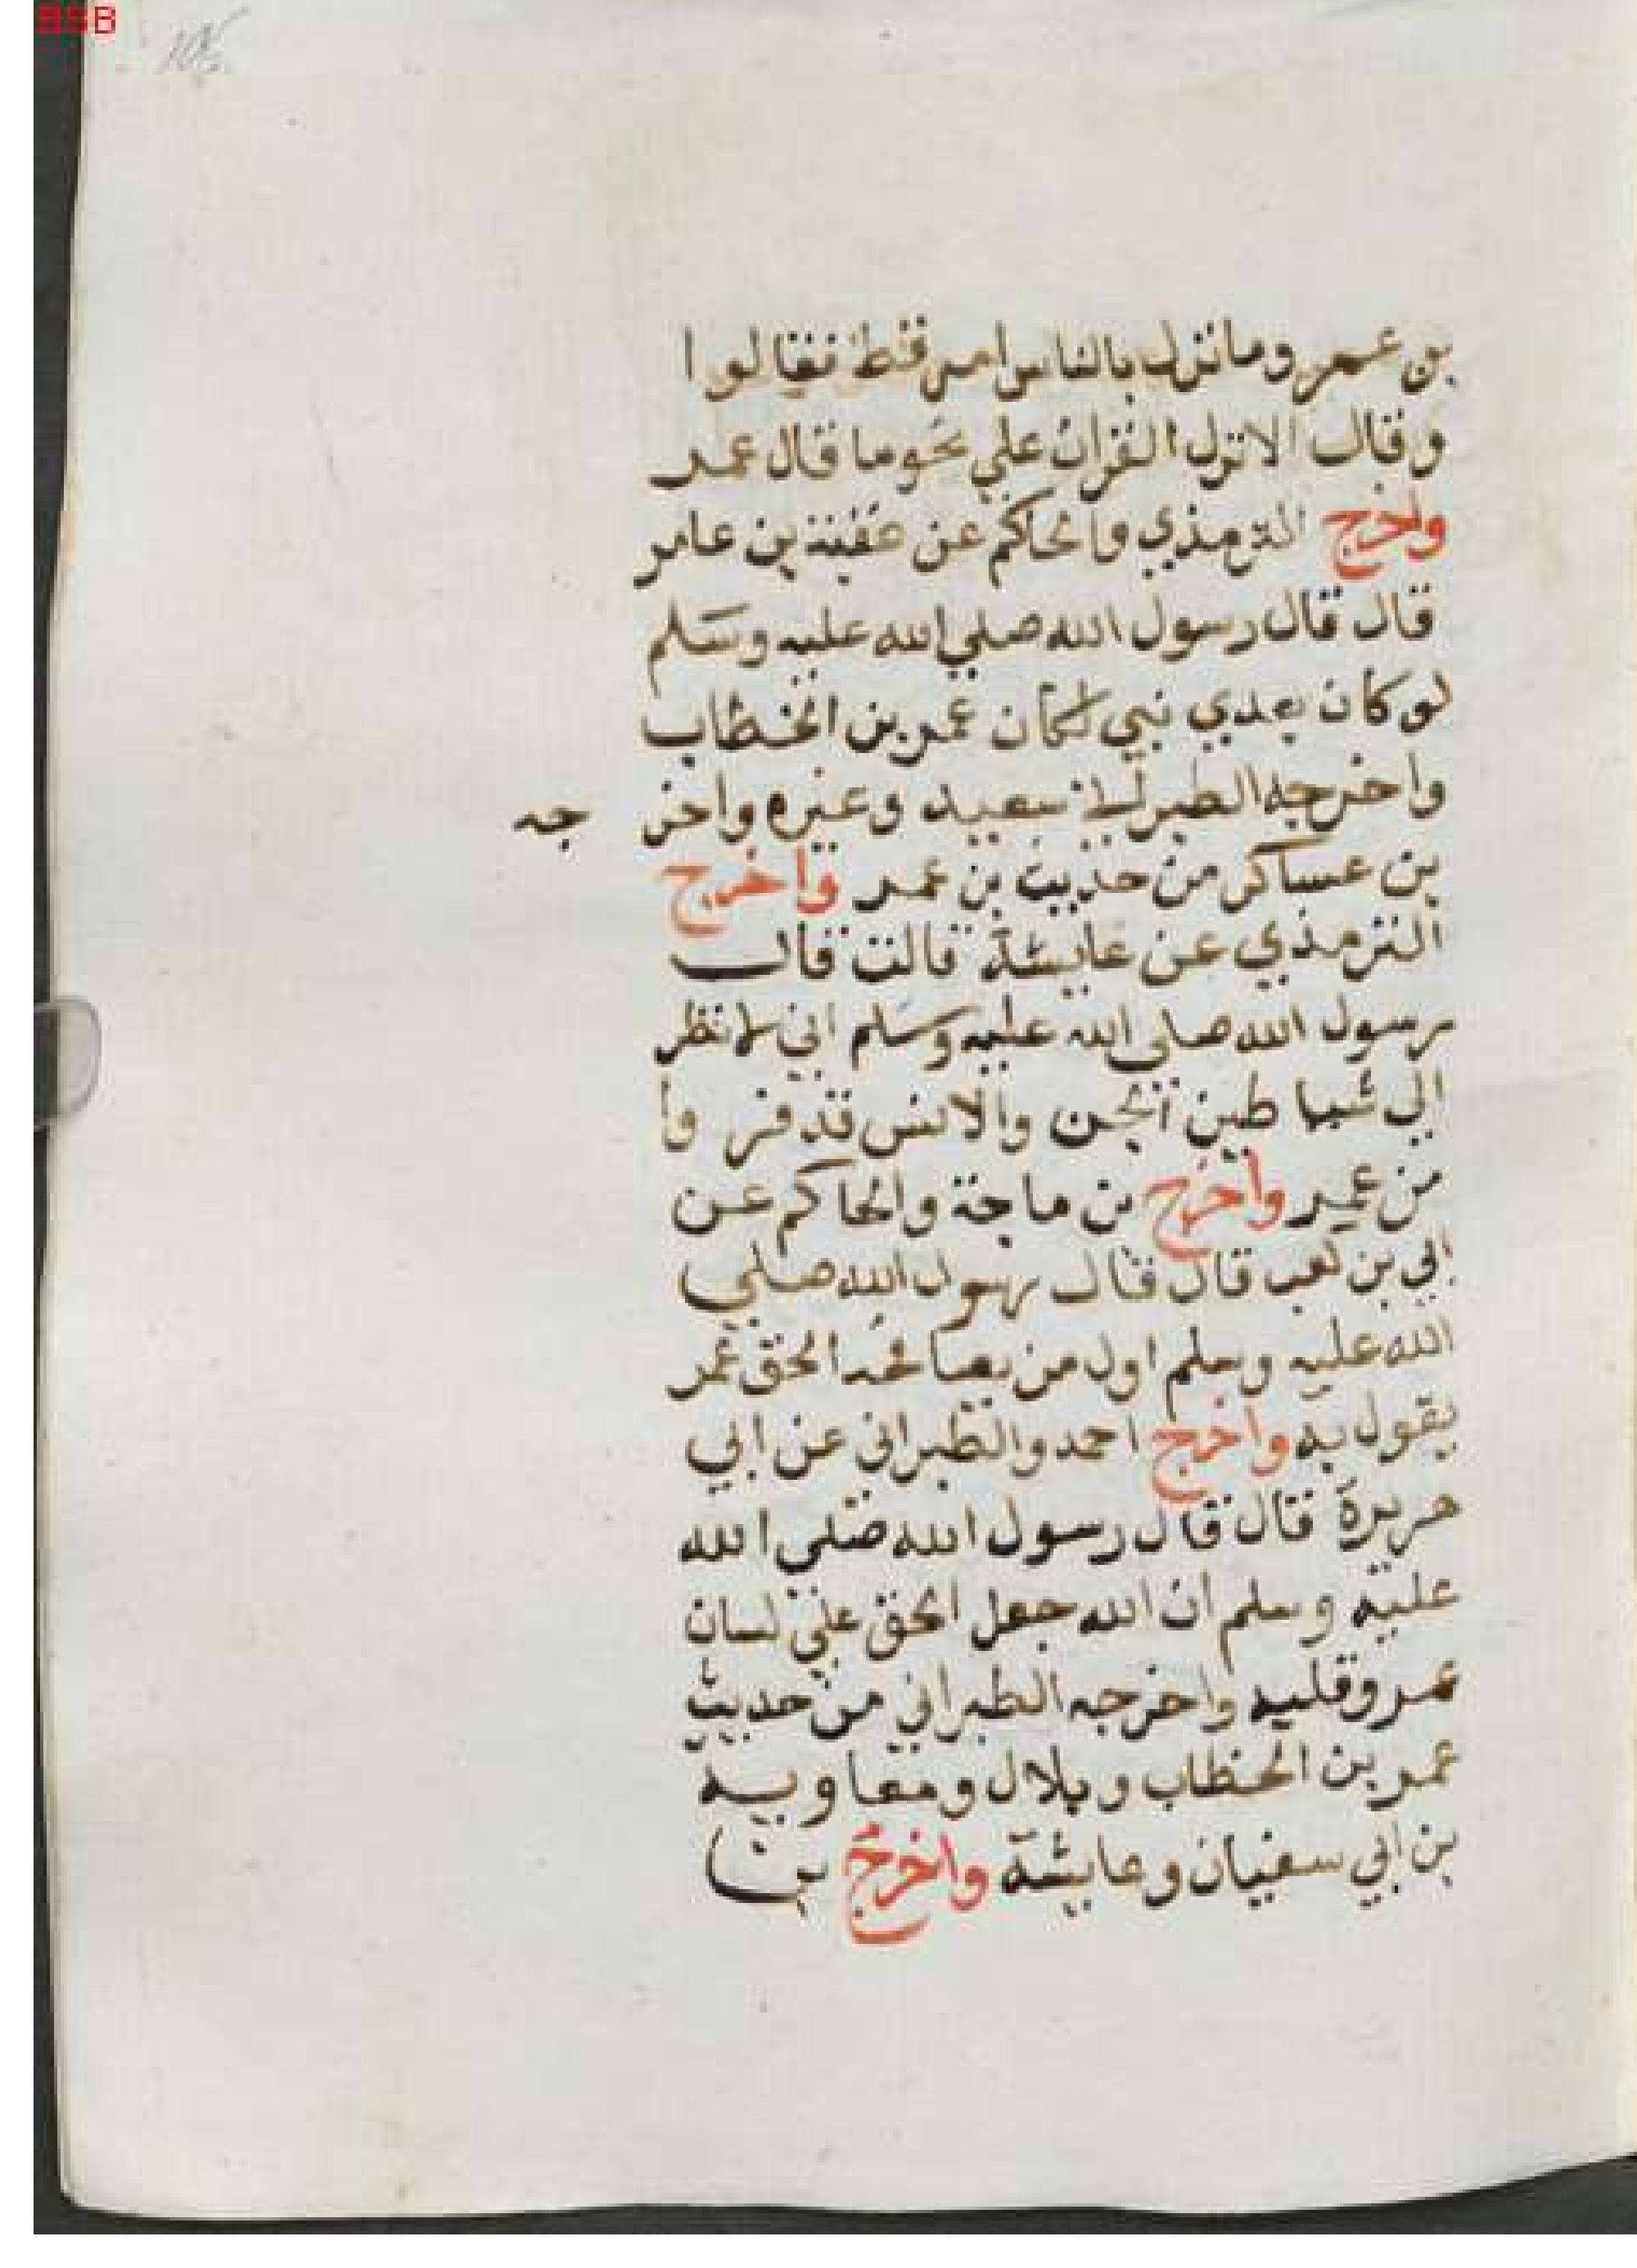 BSB
بن عمر وما نزل بالناس امر قط فقالوا
وقال الا نزل القران علي نحو ما قال عمر
واخرج الترمذي والحاكم عن عقبة بن عامر
قال قال رسول الله صلي الله عليه وسلم
لو كان بعدي نبي لكان عمر بن الخطاب
واخرجه الطبر سعيد وغيره واخر جه
بن عساكر من حديث بن عمر واخرج
الترمذي عن عايشة قالت قال
رسول الله صلى الله عليه وسلم اني لانظر
الي شياطين الجن والانس قد فر وا
من عمر واخرج بن ماجة والحاكم عن
ابي بن كعب قال قال رسول الله صلي
الله عليه وسلم اول من يصافحه الحق عمر
يقول به واخرج احمد والطبراني عن ابي
هريرة قال قال رسول الله صلي الله
عليه وسلم ان الله جعل الحق علي لسان
عمر وقلبه واخرجه الطبراني من حديث
عمر بن الخطاب وبلال ومعاويه
بن ابي سفيان وعايشة واخرج بن